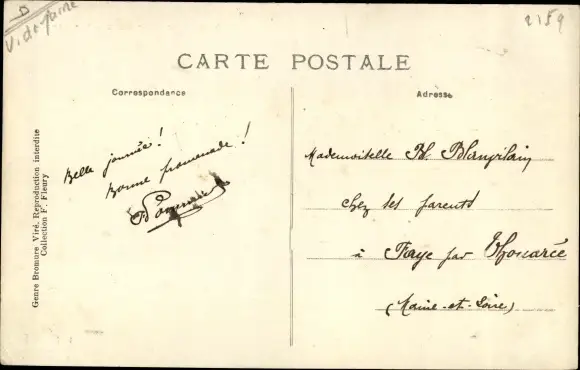 D
2159
CARTE POSTALE
Correspondance
Adresse
Belle journée !
Bonne promenade !
Mademoiselle Bl.
chez ses parents
à Faye par Thouarcé
(Maine-et-Loire)
Genre Bromure Viré. Reproduction interdite
Collection F. Fleury